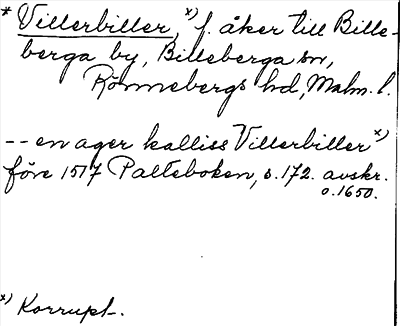 * Villerbiller, x) f. åker till Bille-
berga by, Billeberga sn,
Rönnebergs hd, Malm. l.
-- en ager kalliss Villerbiller x)
före 1517 Palteboken, s. 172. avskr.
o. 1650.
x) Korrupt.